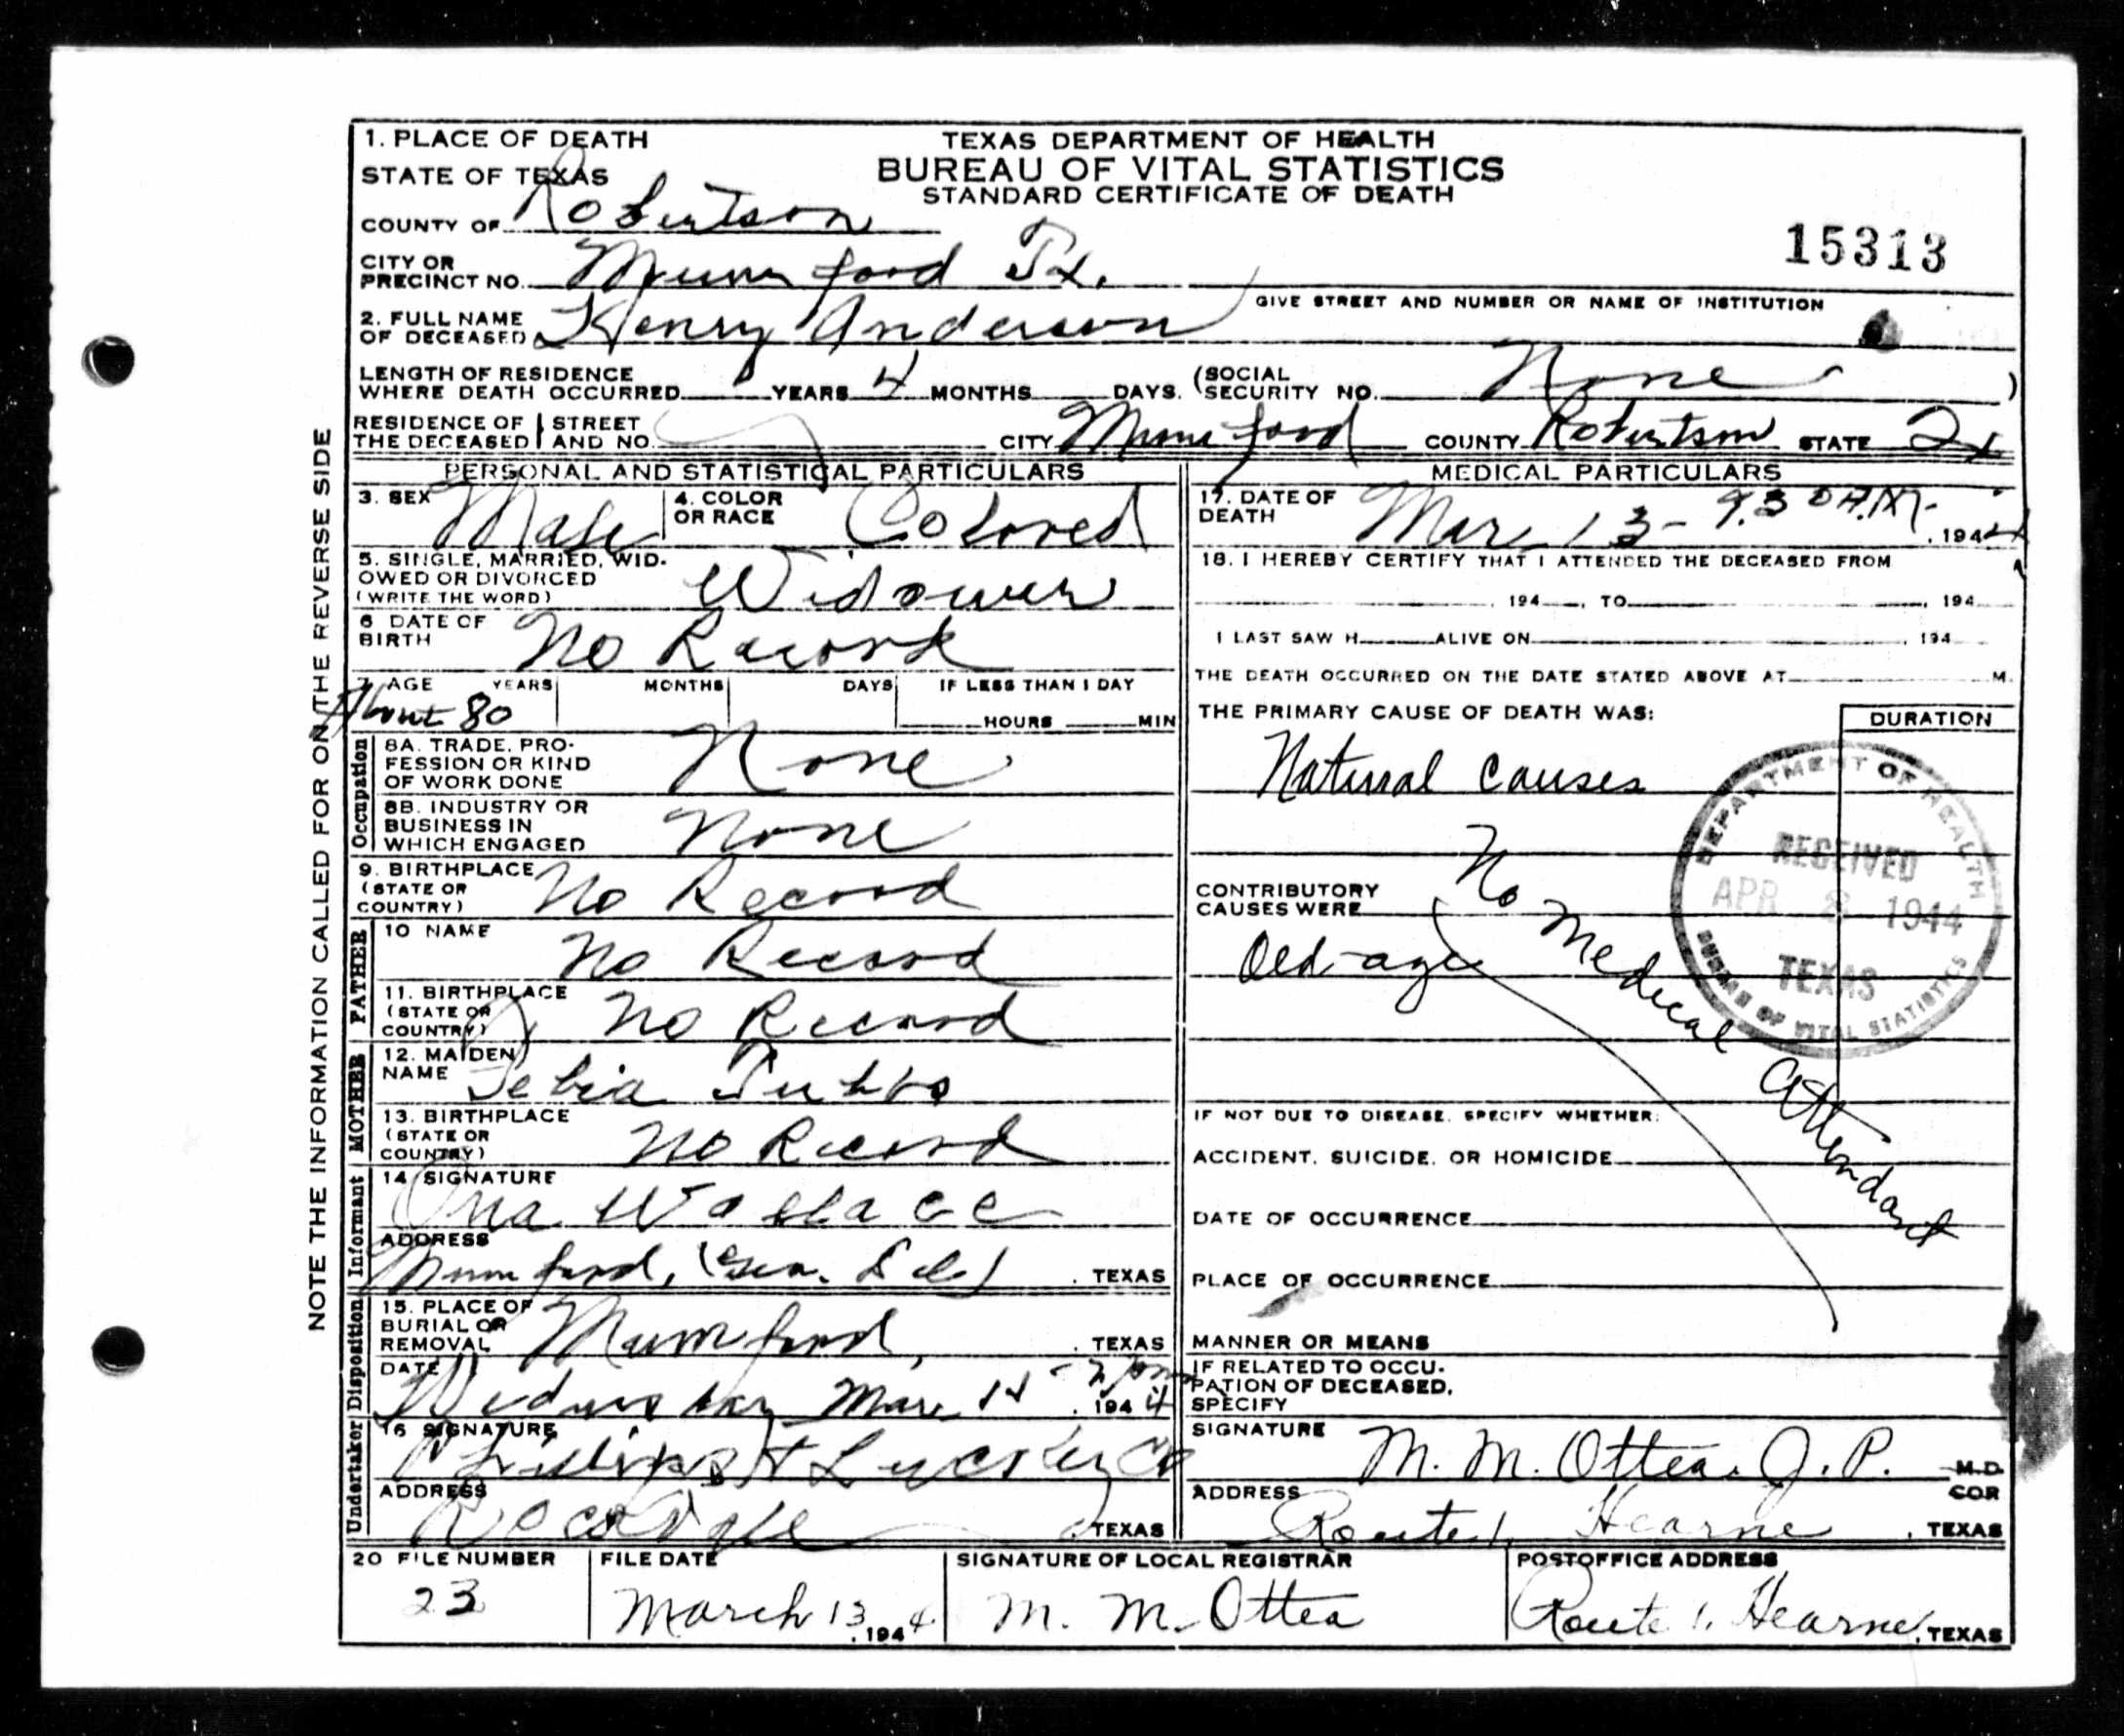 1. PLACE OF DEATH
STATE OF TEXAS
COUNTY OF Robertson
CITY OR PRECINCT NO. Mumford Tx.
TEXAS DEPARTMENT OF HEALTH
BUREAU OF VITAL STATISTICS
STANDARD CERTIFICATE OF DEATH
15313
GIVE STREET AND NUMBER OR NAME OF INSTITUTION
2. FULL NAME OF DECEASED Henry Anderson
LENGTH OF RESIDENCE WHERE DEATH OCCURRED YEARS 4 MONTHS DAYS. (SOCIAL SECURITY NO. None )
RESIDENCE OF THE DECEASED STREET AND NO. CITY Mumford COUNTY Robertson STATE Tx
PERSONAL AND STATISTICAL PARTICULARS
3. SEX Male 4. COLOR OR RACE Colored
5. SINGLE, MARRIED, WIDOWED OR DIVORCED (WRITE THE WORD) Widower
6 DATE OF BIRTH No Record
7. AGE YEARS MONTHS DAYS IF LESS THAN 1 DAY
About 80 HOURS MIN
Occupation
8A. TRADE, PROFESSION OR KIND OF WORK DONE None
8B. INDUSTRY OR BUSINESS IN WHICH ENGAGED None
9. BIRTHPLACE (STATE OR COUNTRY) No Record
FATHER
10 NAME No Record
11. BIRTHPLACE (STATE OR COUNTRY) No Record
MOTHER
12. MAIDEN NAME Tubbs
13. BIRTHPLACE (STATE OR COUNTRY) No Record
Informant
14 SIGNATURE Ona Wallace
ADDRESS
Mumford, (Gen. Del.) . TEXAS
Disposition
15. PLACE OF BURIAL OR REMOVAL Mumford, . TEXAS
DATE Wednesday Mar. 1944
Undertaker
16 SIGNATURE Phillips & Luckey Co
ADDRESS Rockdale , TEXAS
MEDICAL PARTICULARS
17. DATE OF DEATH Mar. 13 - 9.30 A.M. , 1944
18. I HEREBY CERTIFY THAT I ATTENDED THE DECEASED FROM
, 194 , TO , 194
I LAST SAW H ALIVE ON , 194
THE DEATH OCCURRED ON THE DATE STATED ABOVE AT M.
THE PRIMARY CAUSE OF DEATH WAS: DURATION
Natural causes
CONTRIBUTORY CAUSES WERE
Old-age
No Medical Attendant
DEPARTMENT OF HEALTH
RECEIVED
APR 1944
TEXAS
BUREAU OF VITAL STATISTICS
IF NOT DUE TO DISEASE, SPECIFY WHETHER:
ACCIDENT, SUICIDE, OR HOMICIDE
DATE OF OCCURRENCE
PLACE OF OCCURRENCE
MANNER OR MEANS
IF RELATED TO OCCUPATION OF DECEASED, SPECIFY
SIGNATURE M. M. Ottea. J. P. M.D. COR
ADDRESS Route 1, Hearne , TEXAS
20 FILE NUMBER 23
FILE DATE March 13, 1944
SIGNATURE OF LOCAL REGISTRAR M. M. Ottea
POSTOFFICE ADDRESS Route 1, Hearne, TEXAS
NOTE THE INFORMATION CALLED FOR ON THE REVERSE SIDE